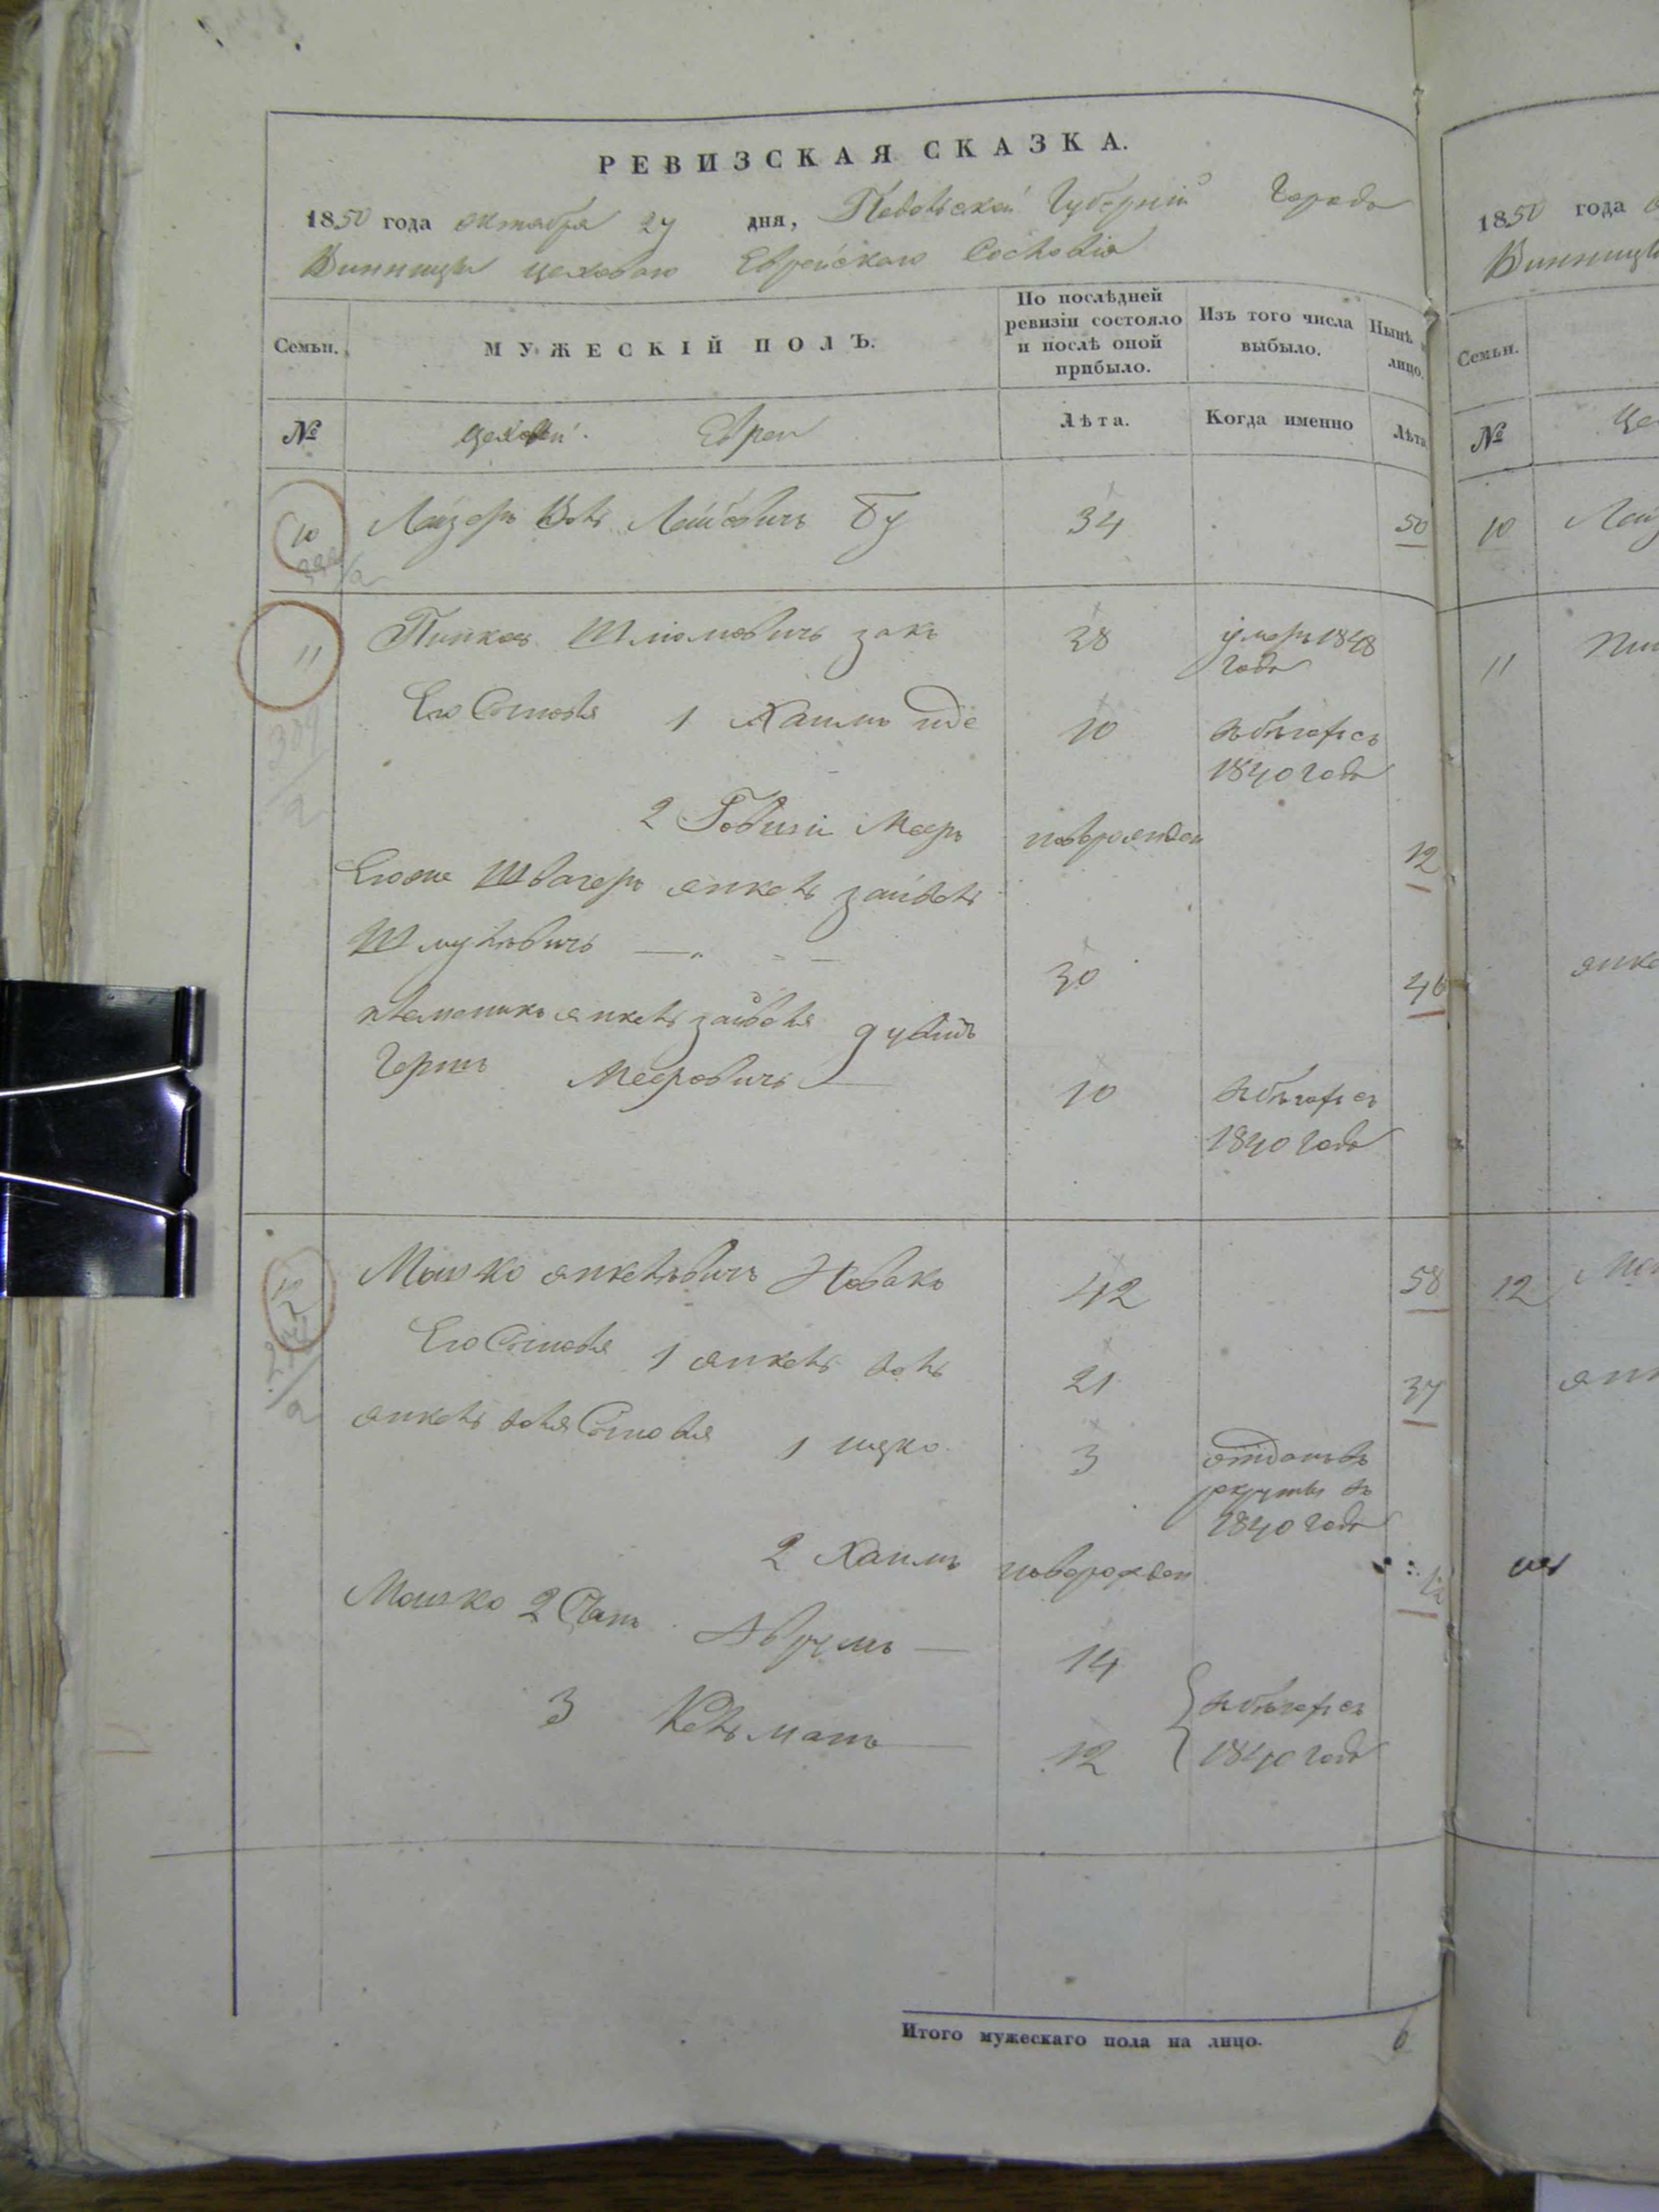 РЕВИЗСКАЯ СКАЗКА.
1850 года октября 27 дня, Подольской Губернии Города
Винницы цеховаго Еврейскаго Сословія
Семьи. МУЖЕСКІЙ ПОЛЪ. По послѣдней ревизіи состояло и послѣ оной прибыло. Изъ того числа выбыло. Нынѣ лицо.
№ Евреи Лѣта. Когда именно Лѣта
10 Лейзеръ Волъ Лейбовичъ 34 50
11 Пинкас Шліомовичъ закъ 38 умеръ 1848
года
Его Сыновья 1 Хаимъ 10 въ бѣгахъ съ
1840 года
2 Мееръ новорожден 12
Егоже Швагеръ янкель
Шмулёвичъ 30 46
племеникъ янкель
Гершъ Мееровичъ 10 въ бѣгахъ съ
1840 года
12 Мошко янкелёвичъ Новакъ 42 58
Его Сыновья 1 янкель волъ 21 37
янкель воля Сыновья 1 ицко 3 отданъ въ
рекруты въ
1840 года
2 Хаимъ новорожден
Мошко 2 Сынъ Аврумъ 14
3 Кельманъ 12 въ бѣгахъ съ
1840 года
Итого мужескаго пола на лицо. 6
1850 года
Винницы
Семьи.
№
10
11
12